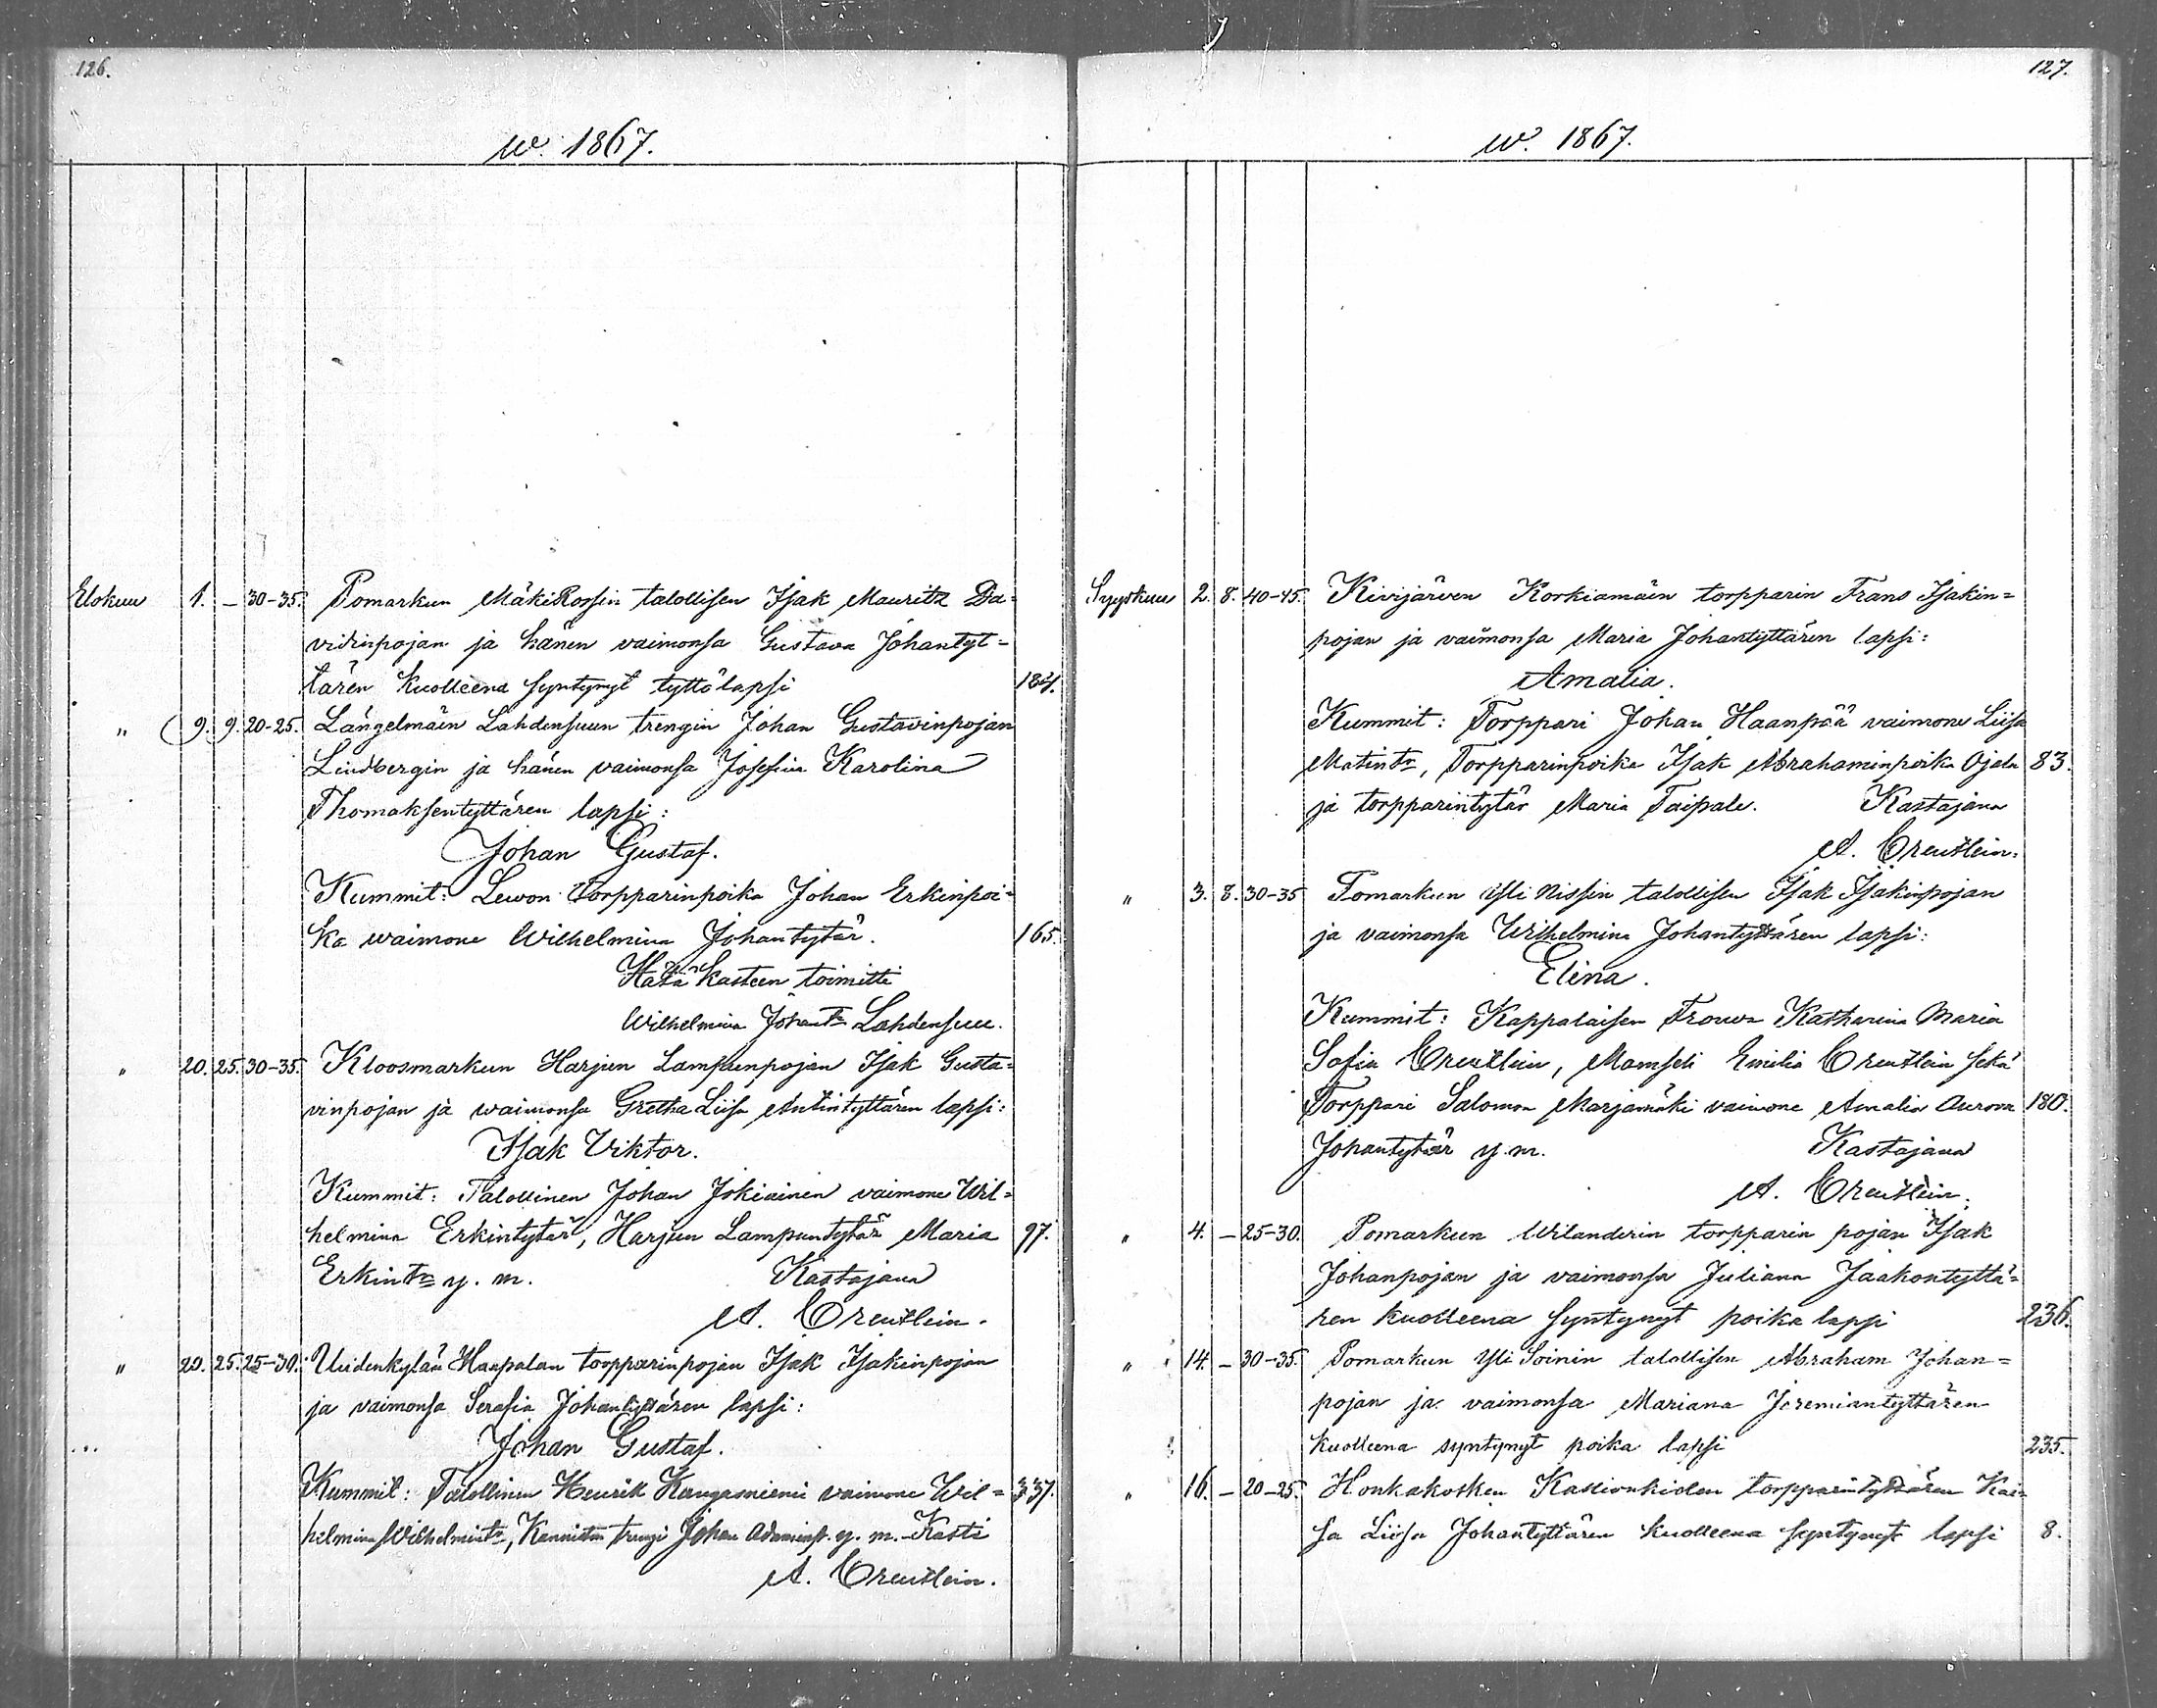 126.
w. 1867.
Elokuu 1. – 30-35. Pomarkun Mäki Rossin talollisen Isak Mauritz Da=
vidinpojan ja hänen vaimonsa Gustava Johantyt=
tären kuolleena syntynyt tyttölapsi 184.
" 9. 9. 20-25. Längelmäin Lahdensuun trengin Johan Gustavinpojan
Lindbergin ja hänen vaimonsa Josefina Karolina
Thomaksentyttären lapsi:
Johan Gustaf.
Kummit: Lewon Torpparinpoika Johan Erkinpoi=
ka waimone Wilhelmina Johantytär. 165.
Hätä kasteen toimitti
Wilhelmina Johantr Lahdensuu.
" 20. 25. 30-35. Kloosmarkun Harjun Lampunpojan Isak Gusta=
vinpojan ja waimonsa Gretha Liisa Antintyttären lapsi:
Isak Viktor.
Kummit: Talollinen Johan Jokiainen vaimone Wil=
helmina Erkintytär, Harjun Lampuntytär Maria 97.
Erkintr y. m. Kastajana
A. Creutlein.
" 20. 25. 25-30. Uudenkylän Haapalan torpparinpojan Isak Isakinpojan
ja vaimonsa Serafia Johantyttären lapsi:
Johan Gustaf.
Kummit: Talollinen Henrik Kangasniemi vaimone Wil= 337.
helmina Wilhelmintr, trengi Johan Adaminp. y. m. Kasti
A. Creutlein.
127.
w. 1867.
Syyskuu 2. 8. 40-45. Kivijärven Korkiamäin torpparin Frans Isakin=
pojan ja vaimonsa Maria Johantyttären lapsi:
Amalia.
Kummit: Torppari Johan Haanpää vaimone Liisa
Matintr, Torpparinpoika Isak Abrahaminpoika Ojala 83.
ja torpparintytär Maria Taipale. Kastajana
A. Creutlein.
" 3. 8. 30-35 Pomarkun Yli Nissin talollisen Isak Isakinpojan
ja vaimonsa Wilhelmina Johantyttären lapsi:
Elina.
Kummit: Kappalaisen Frouva Katharina Maria
Sofia Creutlein, Mamseli Emilia Creutlein sekä
Torppari Salomon Marjamäki vaimone Amalia Aurora 180.
Johantytär y. m. Kastajana
A. Creutlein.
" 4. – 25-30. Pomarkun Wilanderin torpparin pojan Isak
Johanpojan ja vaimonsa Juliana Jaakontyttä=
ren kuolleena syntynyt poika lapsi 236.
" 14. – 30-35. Pomarkun Yli Soinin talollisen Abraham Johan=
pojan ja vaimonsa Mariana Jeremiantyttären
kuolleena syntynyt poika lapsi 235.
" 16. – 20-25. Honkakosken torpparintyttären Kai=
sa Liisa Johantyttären kuolleena syntynyt lapsi 8.